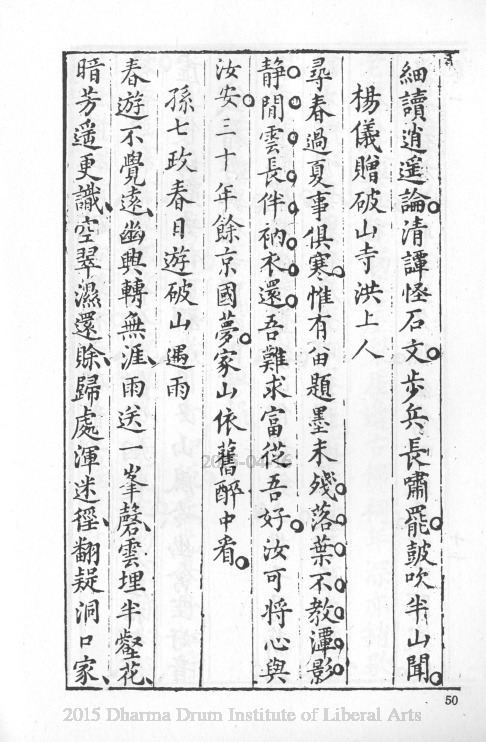 細讀逍遥論清譚怪石文步兵長嘯罷鼓吹半山聞
楊儀贈破山寺洪上人
尋春過夏事俱寒惟有留題墨未殘落葉不教潭影
静閒雲長伴衲衣還吾難求富從吾好汝可將心與
汝安三十年餘京國夢家山依舊醉中看
孫七政春日遊破山遇雨
春遊不覺遠幽興轉無涯雨送一峯磬雲埋半壑花
暗芳遥更識空翠濕還賒歸處渾迷徑翻疑洞口家
50
2015 Dharma Drum Institute of Liberal Arts